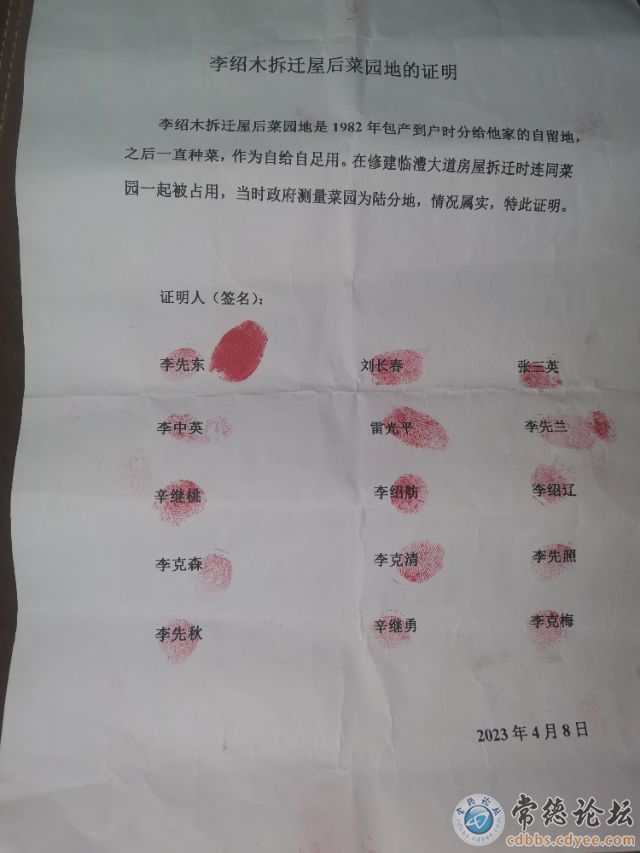 李绍木拆迁屋后菜园地的证明
李绍木拆迁屋后菜园地是1982年包产到户时分给他家的自留地，
之后一直种菜，作为自给自足用。在修建临澧大道房屋拆迁时连同菜
园一起被占用，当时政府测量菜园为陆分地，情况属实，特此证明。
证明人（签名）：
李先东 刘长春 张三英
李中英 雷光平 李先兰
辛继桃 李绍舫 李绍辽
李克森 李克清 李先照
李先秋 辛继勇 李克梅
2023年4月8日
常德论坛
常德论坛
cdbbs.cdyee.com